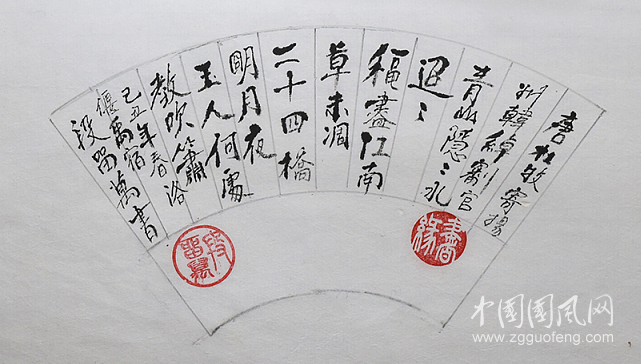 唐杜牧寄揚
州韓綽判官
青山隱〻水
迢〻
穐盡江南
草未凋
二十四橋
明月夜
玉人何處
教吹簫
己丑年春洛
偃禹宿
段雷萬書
書緣
中国国风网
www.zgguofeng.com